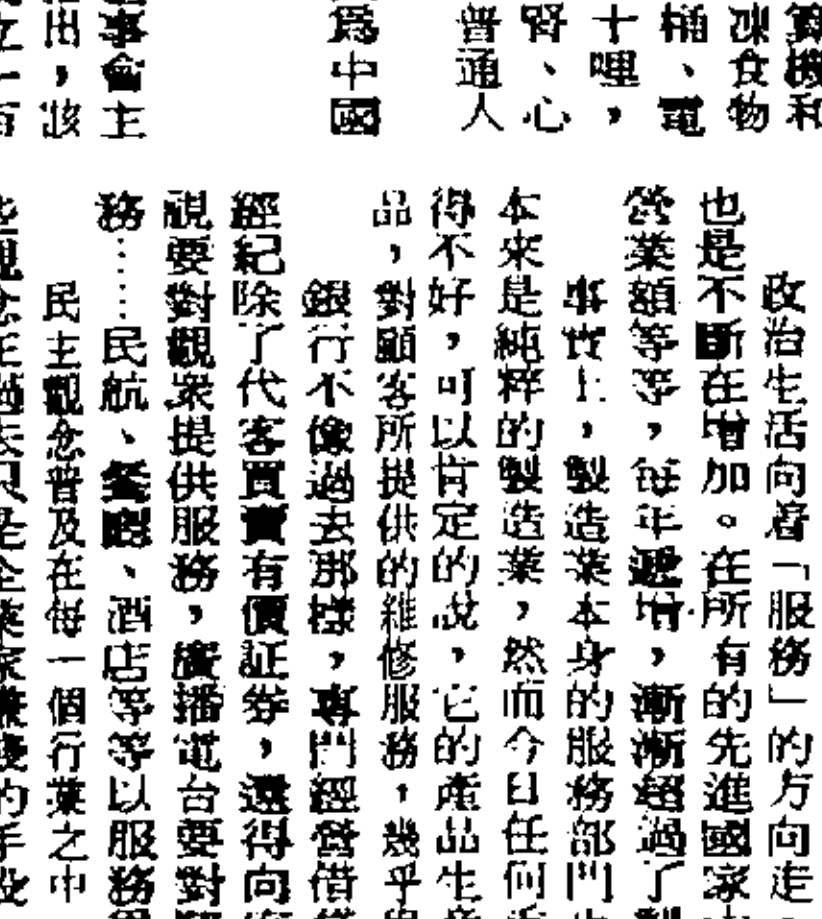 和
凍食物
桶、電
十哩，
腎、心
普通人
為中國
事會主
出，該
一百
政治生活向着「服務」的方向走
也是不斷在增加。在所有的先進國家
營業額等等，每年遞增，漸漸超過了製
事實上，製造業本身的服務部門
本來是純粹的製造業，然而今日任何
得不好，可以肯定的說，它的產品生
品，對顧客所提供的維修服務，幾乎
銀行不像過去那樣，專門經營借
經紀除了代客買賣有價証券，還得向
視要對觀衆提供服務，廣播電台要對
務……民航、餐廳、酒店等等以服務
民主觀念普及在每一個行業之中
觀念在過去只是企業家賺錢的手段